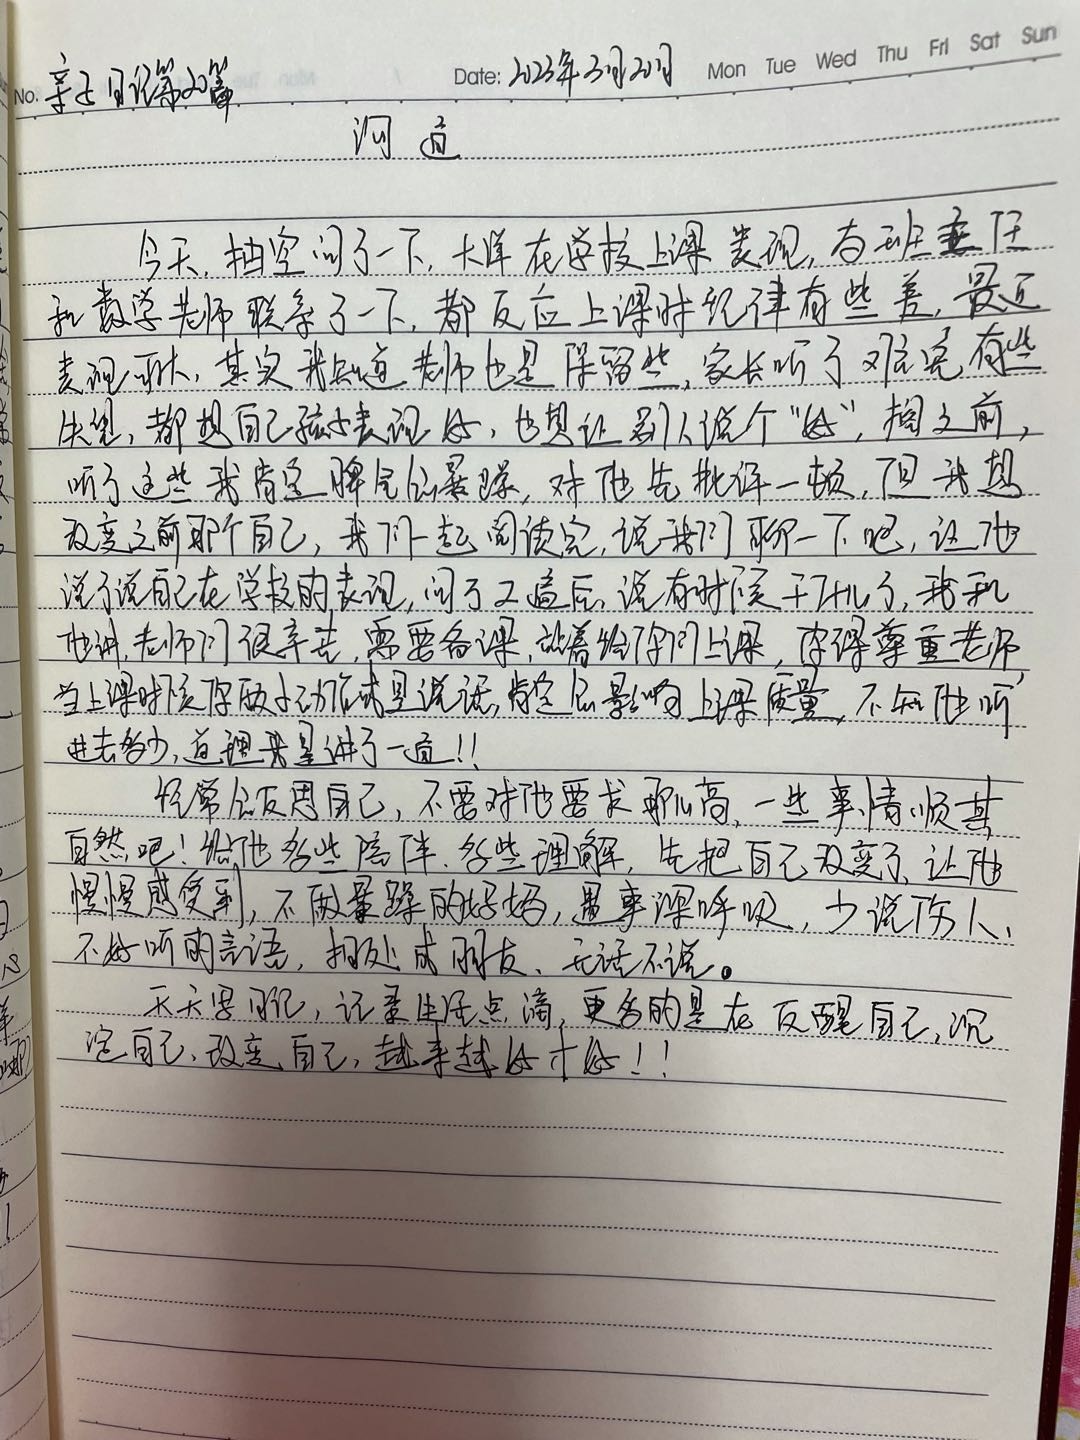 No. 亲子日记第20篇 Date: 2023年3月20日 Mon Tue Wed Thu Fri Sat Sun
沟通
今天,抽空问了一下,大洋在学校上课表现,与班主任
和数学老师联系了一下,都反应上课时纪律有些差,最近
表现,其实我知道老师也是保留些,家长听了难免有些
失望,都想自己孩子表现好,也想让别人说个“好”,搁之前,
听了这些我肯定脾气会暴躁,对他先批评一顿,但我想
改变之前那个自己,我们一起阅读完,说我们聊一下吧,让他
说了说自己在学校的表现,问了2遍后,说有时候了,我和
他讲,老师们很辛苦,需要备课,站着给你们上课,你得尊重老师,
当上课时候你做小动作或是说话,肯定会影响上课质量,不知他听
进去多少,道理我是讲了一遍!!
经常会反思自己,不要对他要求那么高,一些事情顺其
自然吧!给他多些陪伴、多些理解,先把自己改变了,让他
慢慢感受到,不做暴躁的好妈,遇事深呼吸,少说伤人、
不好听的言语,相处成朋友、无话不说。
天天写日记,记录生活点滴,更多的是在反醒自己,沉
淀自己,改变自己,越来越好才好!!